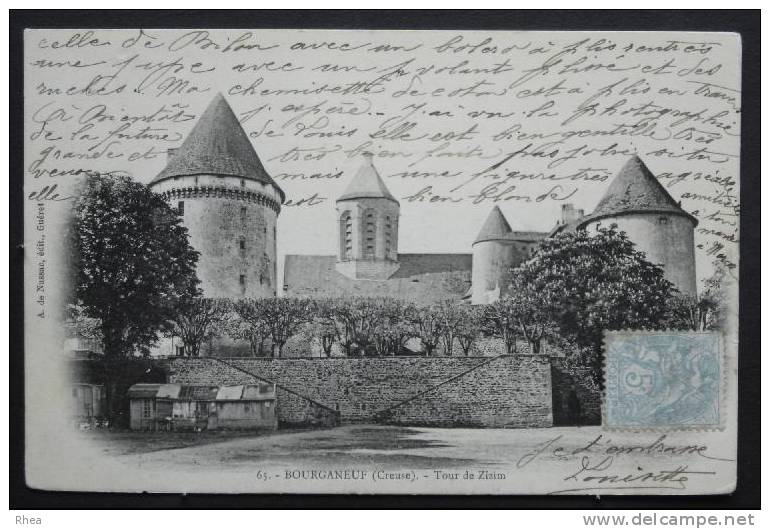 celle de Bilon avec un bolero à plis rentrés
une jupe avec un volant plissé et des
ruches. Ma chemisette de coton est à plis en travers
(à Bientôt j'espère. - J'ai vu la photographie
de la future de Louis elle est bien gentille très
grande et très bien faite pas jolie si tu
veux mais une figure très
elle est bien blonde
A. de Nussac, édit., Guéret
5
je t'embrasse
Louisette
65. - BOURGANEUF (Creuse). - Tour de Zizim
Rhea
http://www.delcampe.net